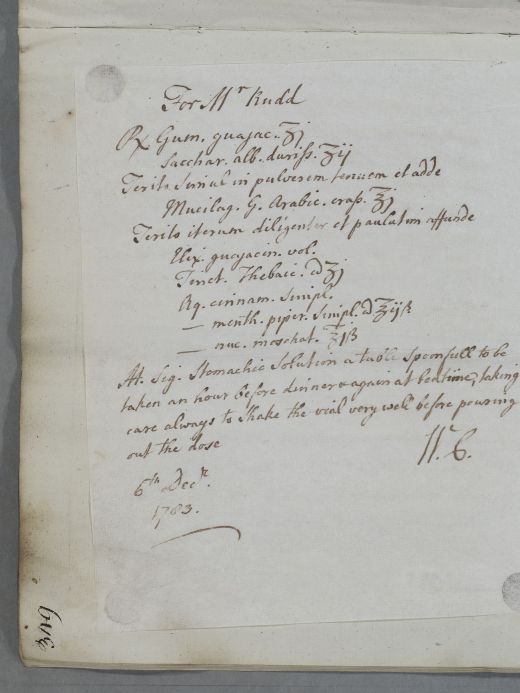 For Mr Rudd
℞ Gum. guajac. ʒj
Sacchar. alb. duriss. ʒij
Terito simul in pulverem tenuem et adde
Mucilag. G. Arabic. crass. ʒj
Terito iterum diligenter et paulatim affunde
Elix. guajacin. vol.
Tinct. Thebaic. a ʒj
Aq. cinnam. simpl.
— menth. piper. simpl. a ℥ijß
— nuc. moschat. ℥jß
Sig. Stomachic Solution a table spoonfull to be
taken an hour before dinner & again at bedtime, taking
care always to shake the vial very well before pouring
out the dose
W. C.
6th Decr.
1783.